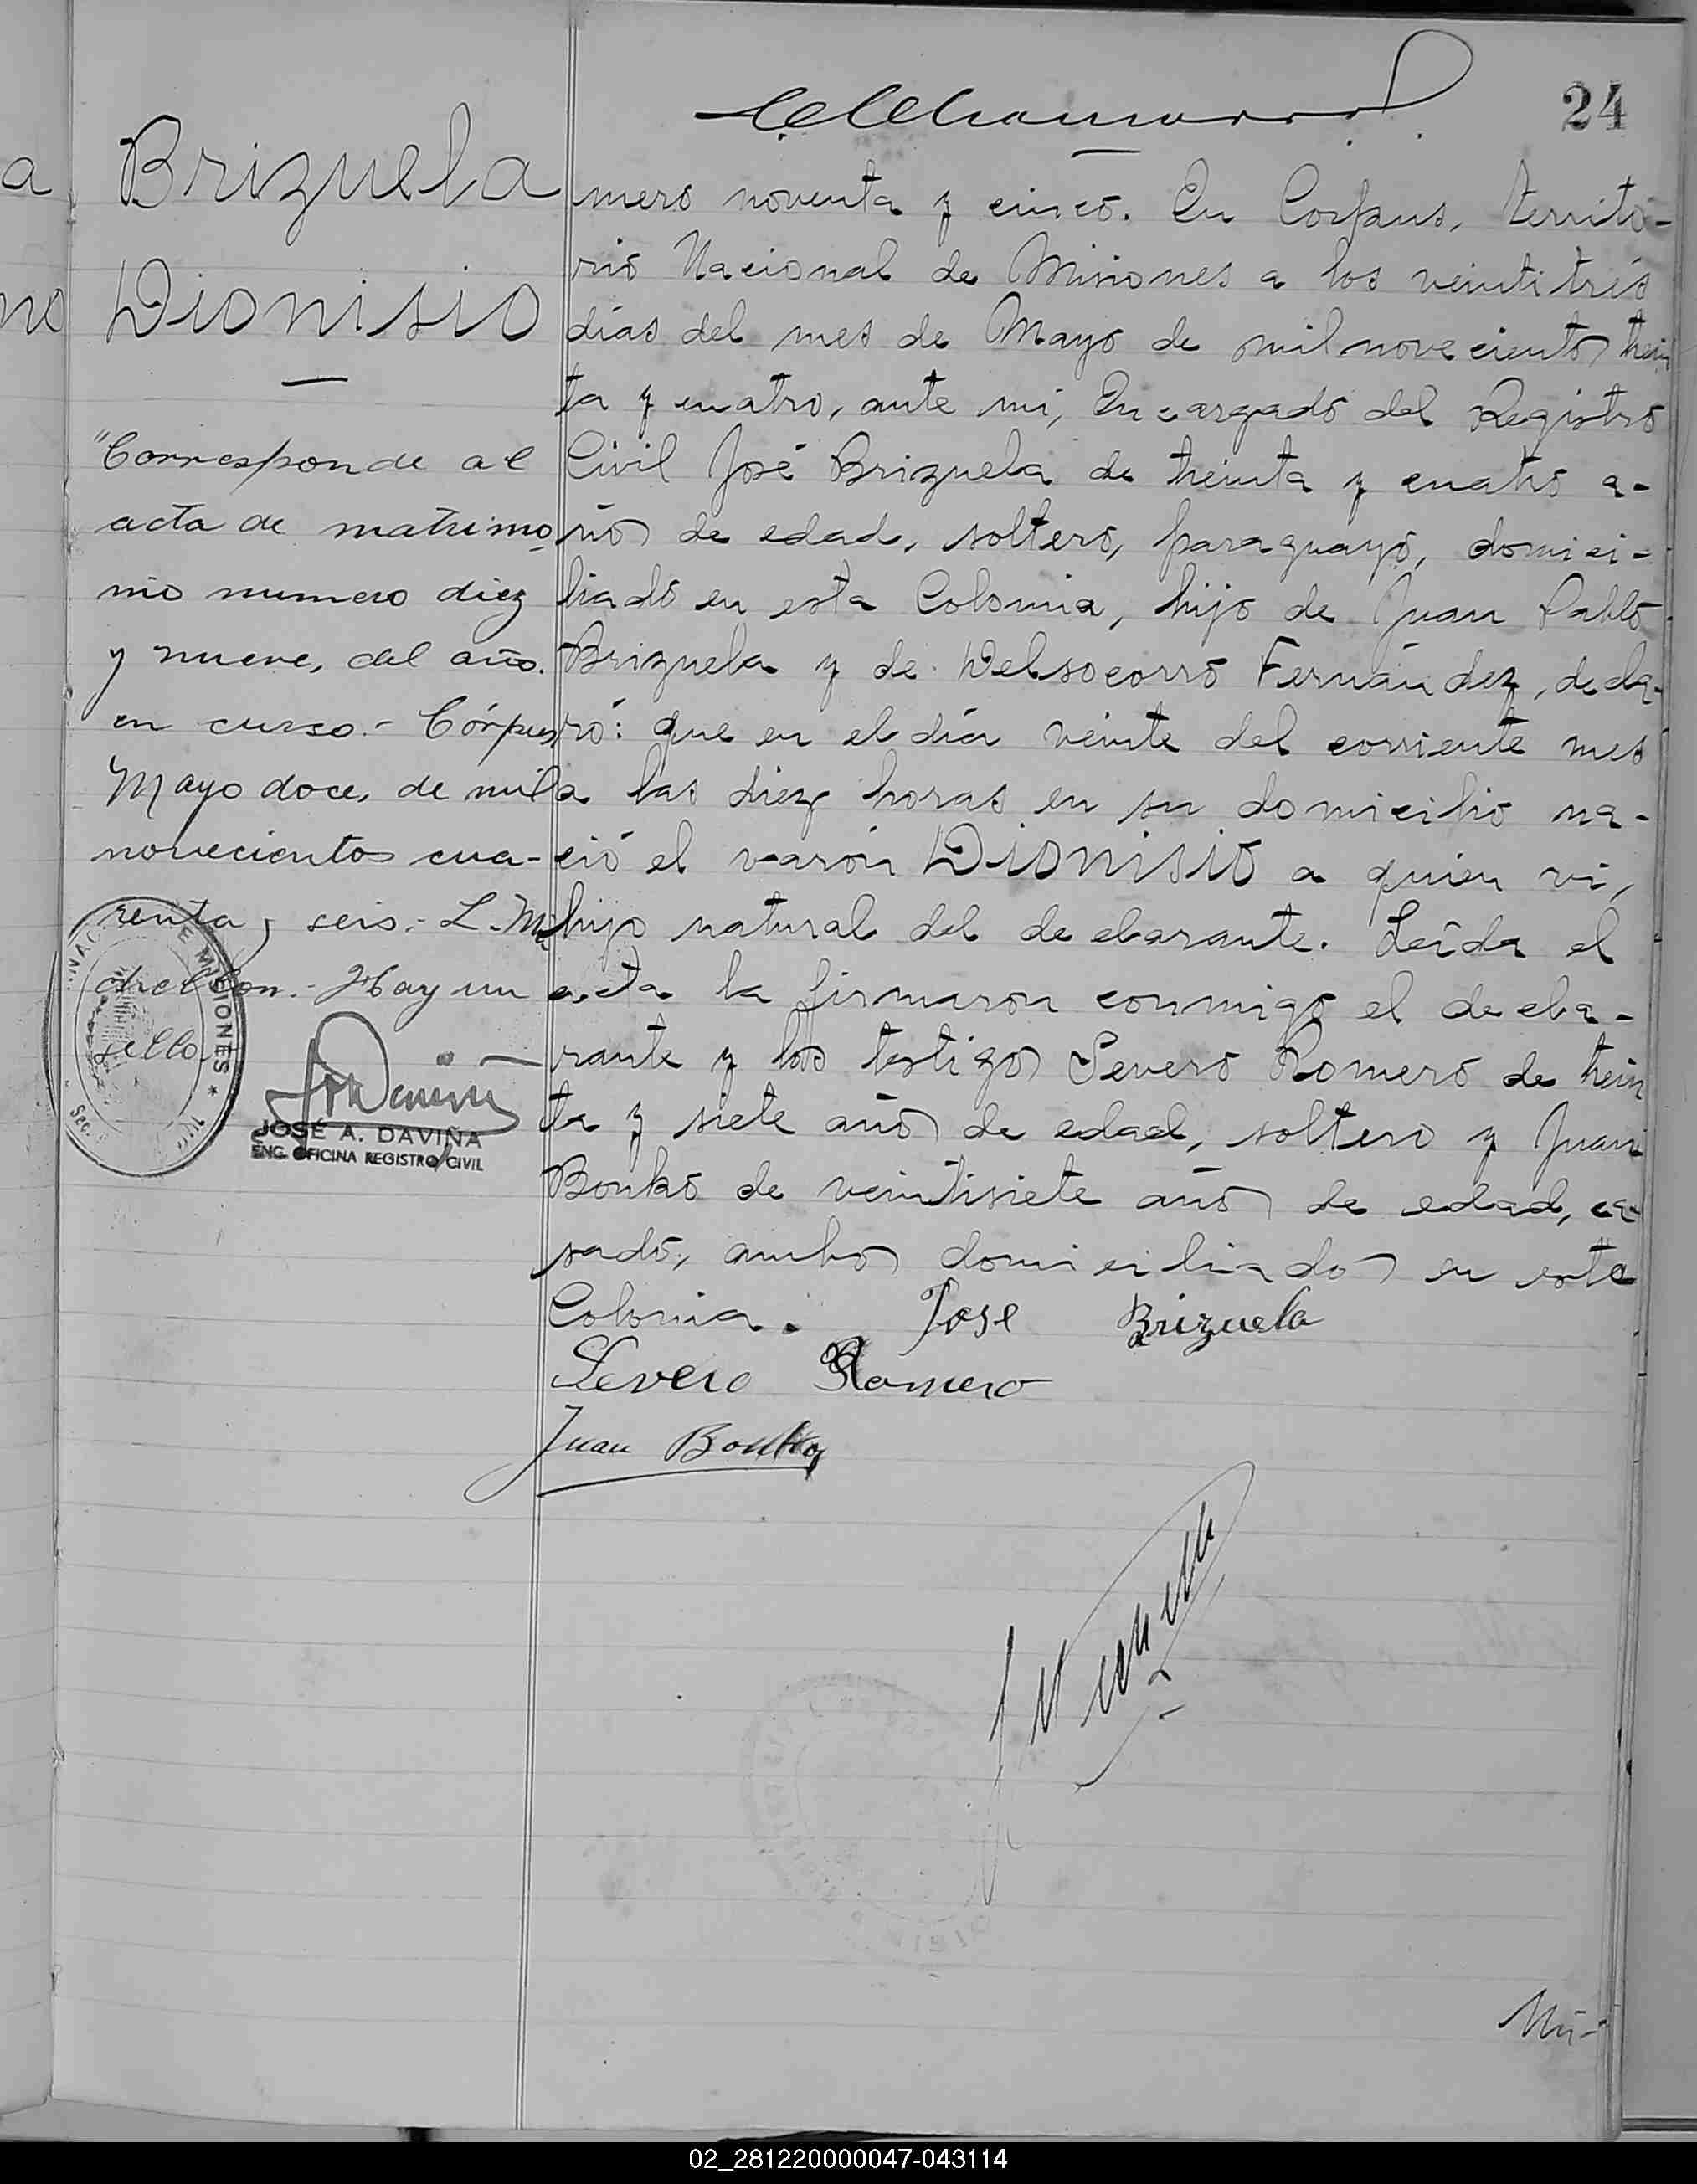 24
Brizuela
Dionisio
"Corresponde al
acta de matrimo
nio numero diez
y nueve, del año
en curso.- Córpus,
Mayo doce, de mil
novecientos cua-
renta y seis.- L. M.
Hay un
sello.
MISIONES
JOSÉ A. DAVIÑA
ENC. OFICINA REGISTRO CIVIL
mero noventa y cinco. En Corpus, territo-
rio Nacional de Misiones a los veintitrés
días del mes de Mayo de mil novecientos trein
ta y cuatro, ante mi, Encargado del Registro
Civil José Brizuela de treinta y cuatro a-
ños de edad, soltero, paraguayo, domici-
liado en esta Colonia, hijo de Juan Pablo
Brizuela y de Delsocorro Fernández, decla-
ró: que en el día veinte del corriente mes
a las diez horas en su domicilio na-
ció el varón Dionisio a quien vi,
hijo natural del declarante. Leída el
acta la firmaron conmigo el decla-
rante y los testigos Severo Romero de trein
ta y siete años de edad, soltero y Juan
Bonko de veintisiete años de edad, ca-
sado, ambos domiciliados en esta
Colonia. Jose Brizuela
Severo Romero
Juan
Nú-
02_281220000047-043114